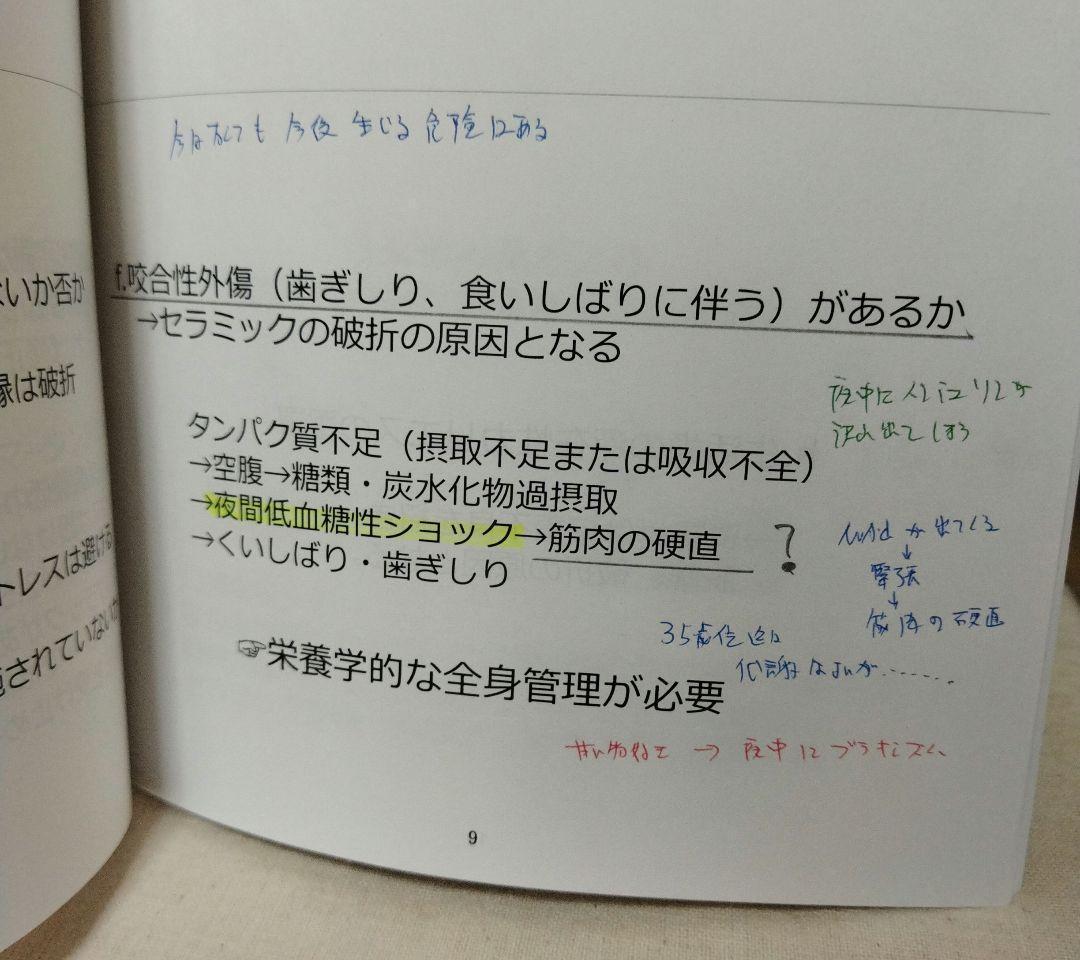 今はなくても 今後 生じる 危険はある
ないか否か
f.咬合性外傷（歯ぎしり、食いしばりに伴う）があるか
→セラミックの破折の原因となる
縁は破折
夜中に インシュリンが
沢山 出てしまう
タンパク質不足（摂取不足または吸収不全）
→空腹→糖類・炭水化物過摂取
→夜間低血糖性ショック→筋肉の硬直 ?
→くいしばり・歯ぎしり
トレスは避ける
が出てくる
↓
緊張
↓
筋肉の硬直
されていないか
35歳位迄は
代謝なよいが……
☞栄養学的な全身管理が必要
甘い物など → 夜中にブラキシズム
9